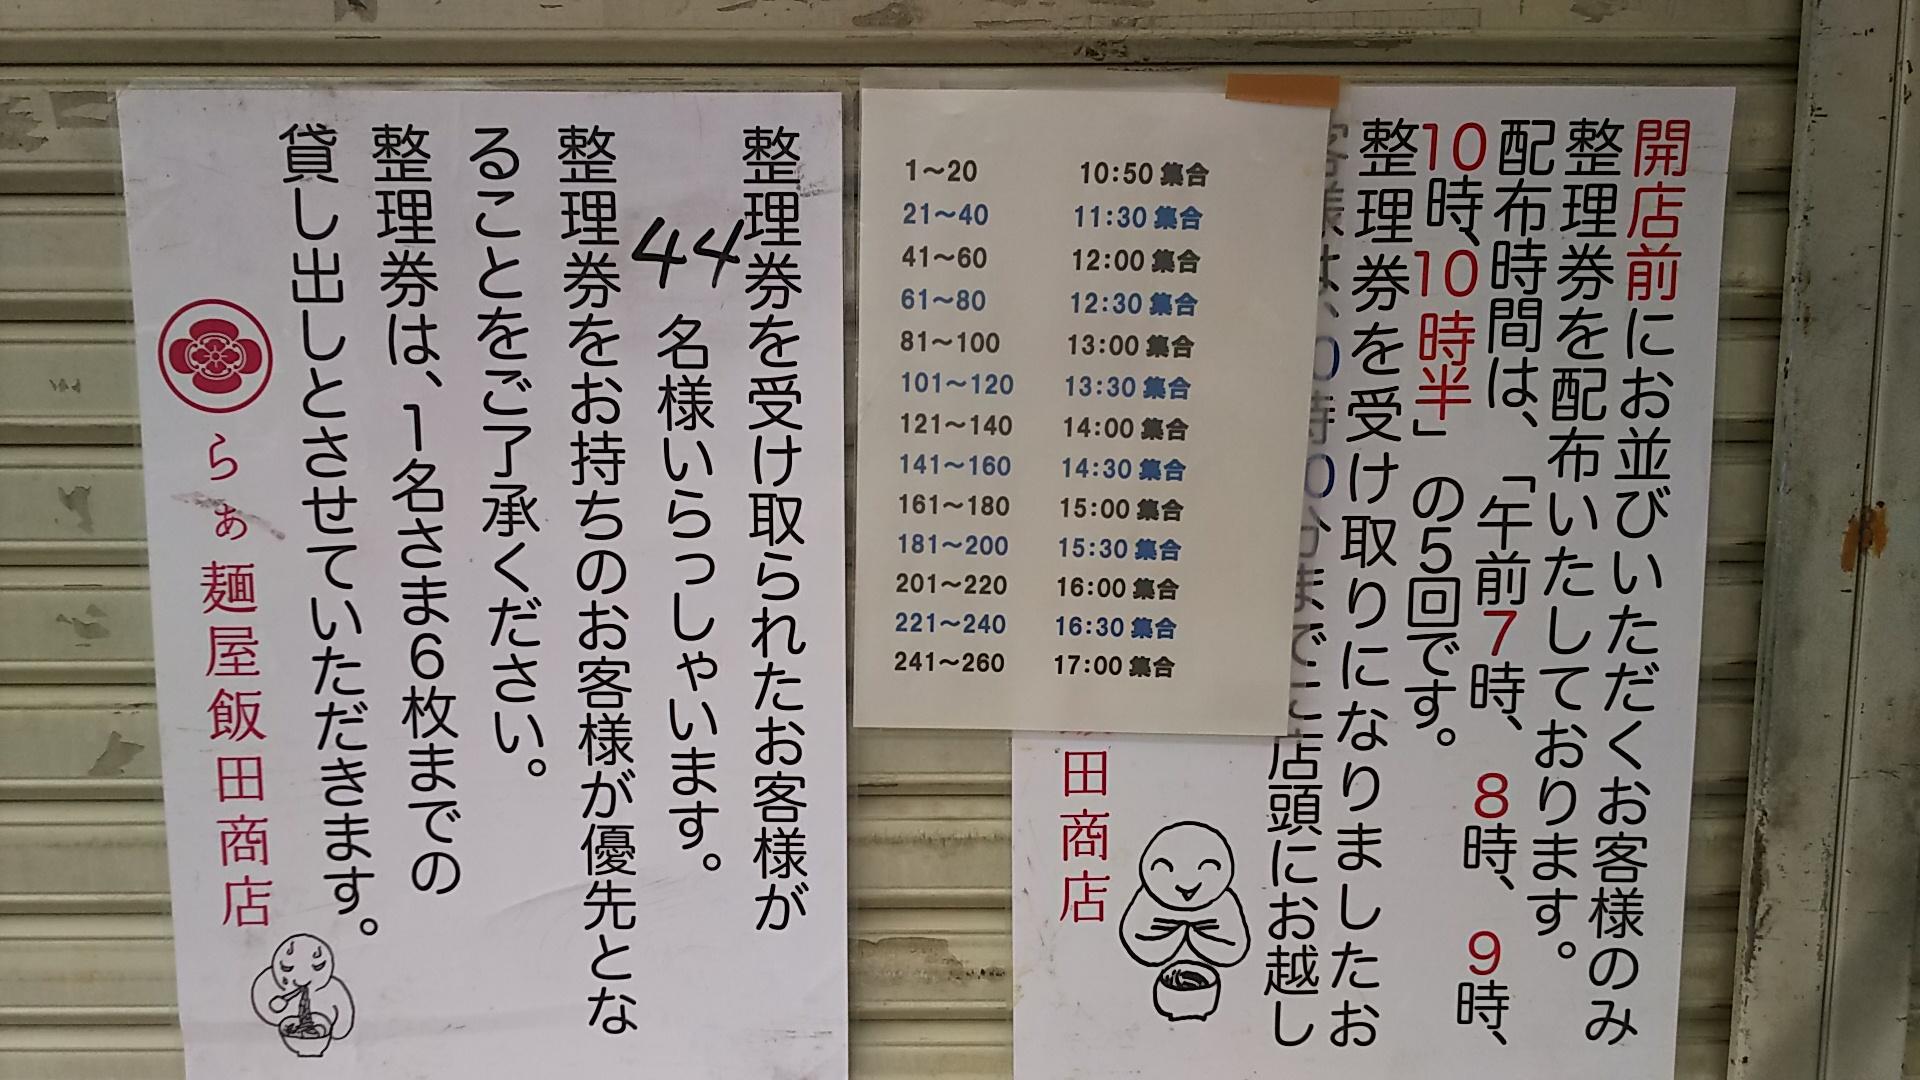 開店前にお並びいただくお客様のみ
整理券を配布いたしております。
配布時間は、「午前7時、8時、9時、
10時、10時半」の5回です。
整理券を受け取りになりましたお
店頭にお越し
田商店
1～20 10:50集合
21～40 11:30集合
41～60 12:00集合
61～80 12:30集合
81～100 13:00集合
101～120 13:30集合
121～140 14:00集合
141～160 14:30集合
161～180 15:00集合
181～200 15:30集合
201～220 16:00集合
221～240 16:30集合
241～260 17:00集合
整理券を受け取られたお客様が
44名様いらっしゃいます。
整理券をお持ちのお客様が優先とな
ることをご了承ください。
整理券は、1名さま6枚までの
貸し出しとさせていただきます。
らぁ麺屋飯田商店